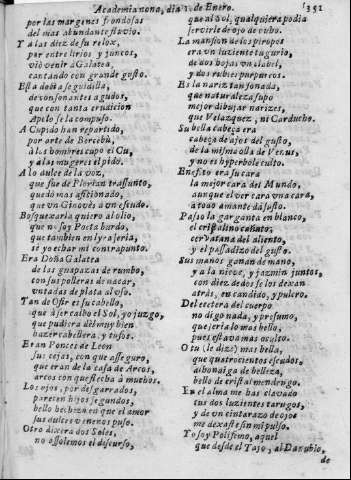 Academia nona, dia 1. de Enero. 352
por las margenes frondosas
del mas abundante fluvio.
Y a las diez de su relox,
por entre lirios y juncos,
viò venir à Galatea,
cantando con grande gusto.
Esta dezia seguidilla,
de consonantes agudos,
que con tanta erudicion
Apolo se la compuso.
A Cupido han repartido,
por arte de Bercebù,
a los hombres cupo el Cu,
y a las mugeres el pido.
A lo dulce de la voz,
que fue de Florian trassunto,
quedò mas aficionado,
que un Ginovès a un escudo.
Bosquexarla quiero al olio,
que no soy Poeta burdo,
que tambien en lyra seria,
sè yo echar mi contrapunto.
Era Doña Galatea
de las guapazas de rumbo,
con sus polleras de nacar,
untadas de plata al uso.
Tan de Ofir es su cabello,
que à ser calvo el Sol, yo juzgo,
que pudiera alli muy bien
hazer cabellera, y tufos.
Eran Ponces de Leon
sus cejas, con que asseguro,
que eran de la casa de Arcos,
arcos con que flecha a muchos.
Los ojos, por desgarrados,
parecen hijos segundos,
bello hechizo en que el amor
sus dulces venenos puso.
Otro dixera dos Soles,
no assolemos el discurso,
que al Sol, qualquiera podia
servirle de ojo de culto.
La mansion de los piropos
era un luziente tugurio,
de dos hojas un clabel,
y dos rubies purpureos.
Es la nariz tan fonada,
que naturaleza supo
mejor dibujar narizes,
que Velazquez, ni Carducho.
Su bella cabeça era
cabeça de ajos del gusto,
de la misma olla de Venus,
y no es hyperbole culto.
En efeto era su cara
la mejor cara del Mundo,
aunque el ver cara una cara,
a todo amante da susto.
Passo la garganta en blanco,
el cristalino cañuto,
cervatana del aliento,
y el passadizo del gusto.
Sus manos ganan de mano,
y a la nieve, y jazmin juntos,
con diez dedos se los dexan
atràs, en candido, y pulcro.
Del etcetera del cuerpo
no digo nada, y presumo,
que seria lo mas bello,
pues estava mas oculto.
O tu (le dize) mas bella,
que quatrocientos escudos,
alhonaiga de belleza,
bello de cristal mendrugo.
En el alma me has clavado
tus dos luzientes tarugos,
y de un cintarazo de ojos
me dexaste sin pulso.
Yo soy Polifemo, aquel
que desde el Tajo, al Danubio,
de